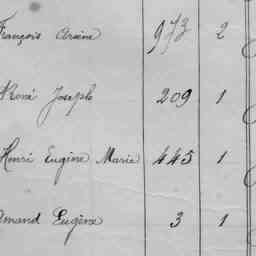 François Arsène 973 2
René Joseph 209 1
Henri Eugène Marie 445 1
Amand Eugène 3 1